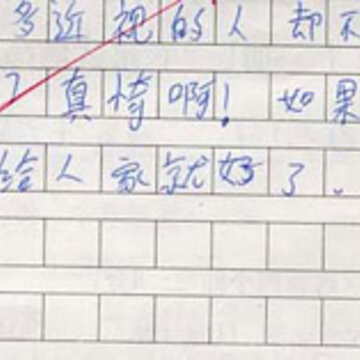 多近视的人却不
了真啊！如果
给人家就好了。